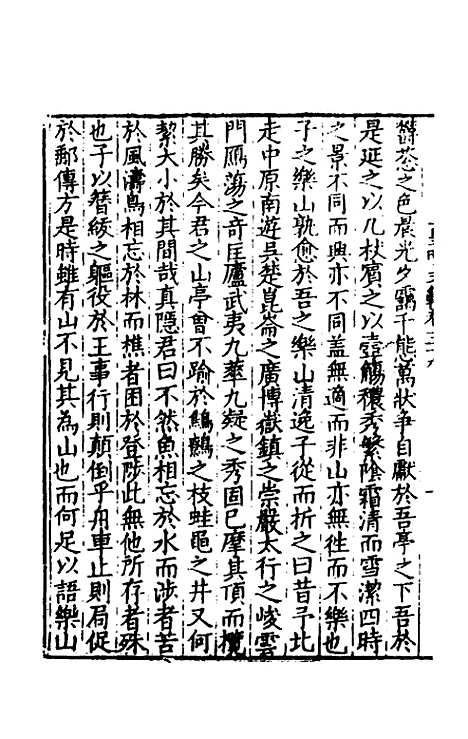 鬱葱之色晨光夕靄千態萬狀争自獻於吾亭之下吾於
是延之以几杖賔之以壺觴穠秀繁陰霜清而雪潔四時
之景不同而興亦不同盖無適而非山亦無徃而不樂也
子之樂山孰愈於吾之樂山清逸子從而折之曰昔予北
走中原南遊吴楚崑崙之廣博嶽鎮之崇嚴太行之峻雲
門鴈蕩之竒匡廬武夷九華九疑之秀固已摩其頂而攬
其勝矣今君之山亭曾不踰於鷦鷯之枝蛙黽之井又何
絜大小於其間哉真隱君曰不然魚相忘於水而涉者苦
於風濤鳥相忘於林而樵者困於登陟此無他所存者殊
也子以簪綾之軀役於王事行則顛倒乎舟車止則局促
於郵傳方是時雖有山不見其為山也而何足以語樂山